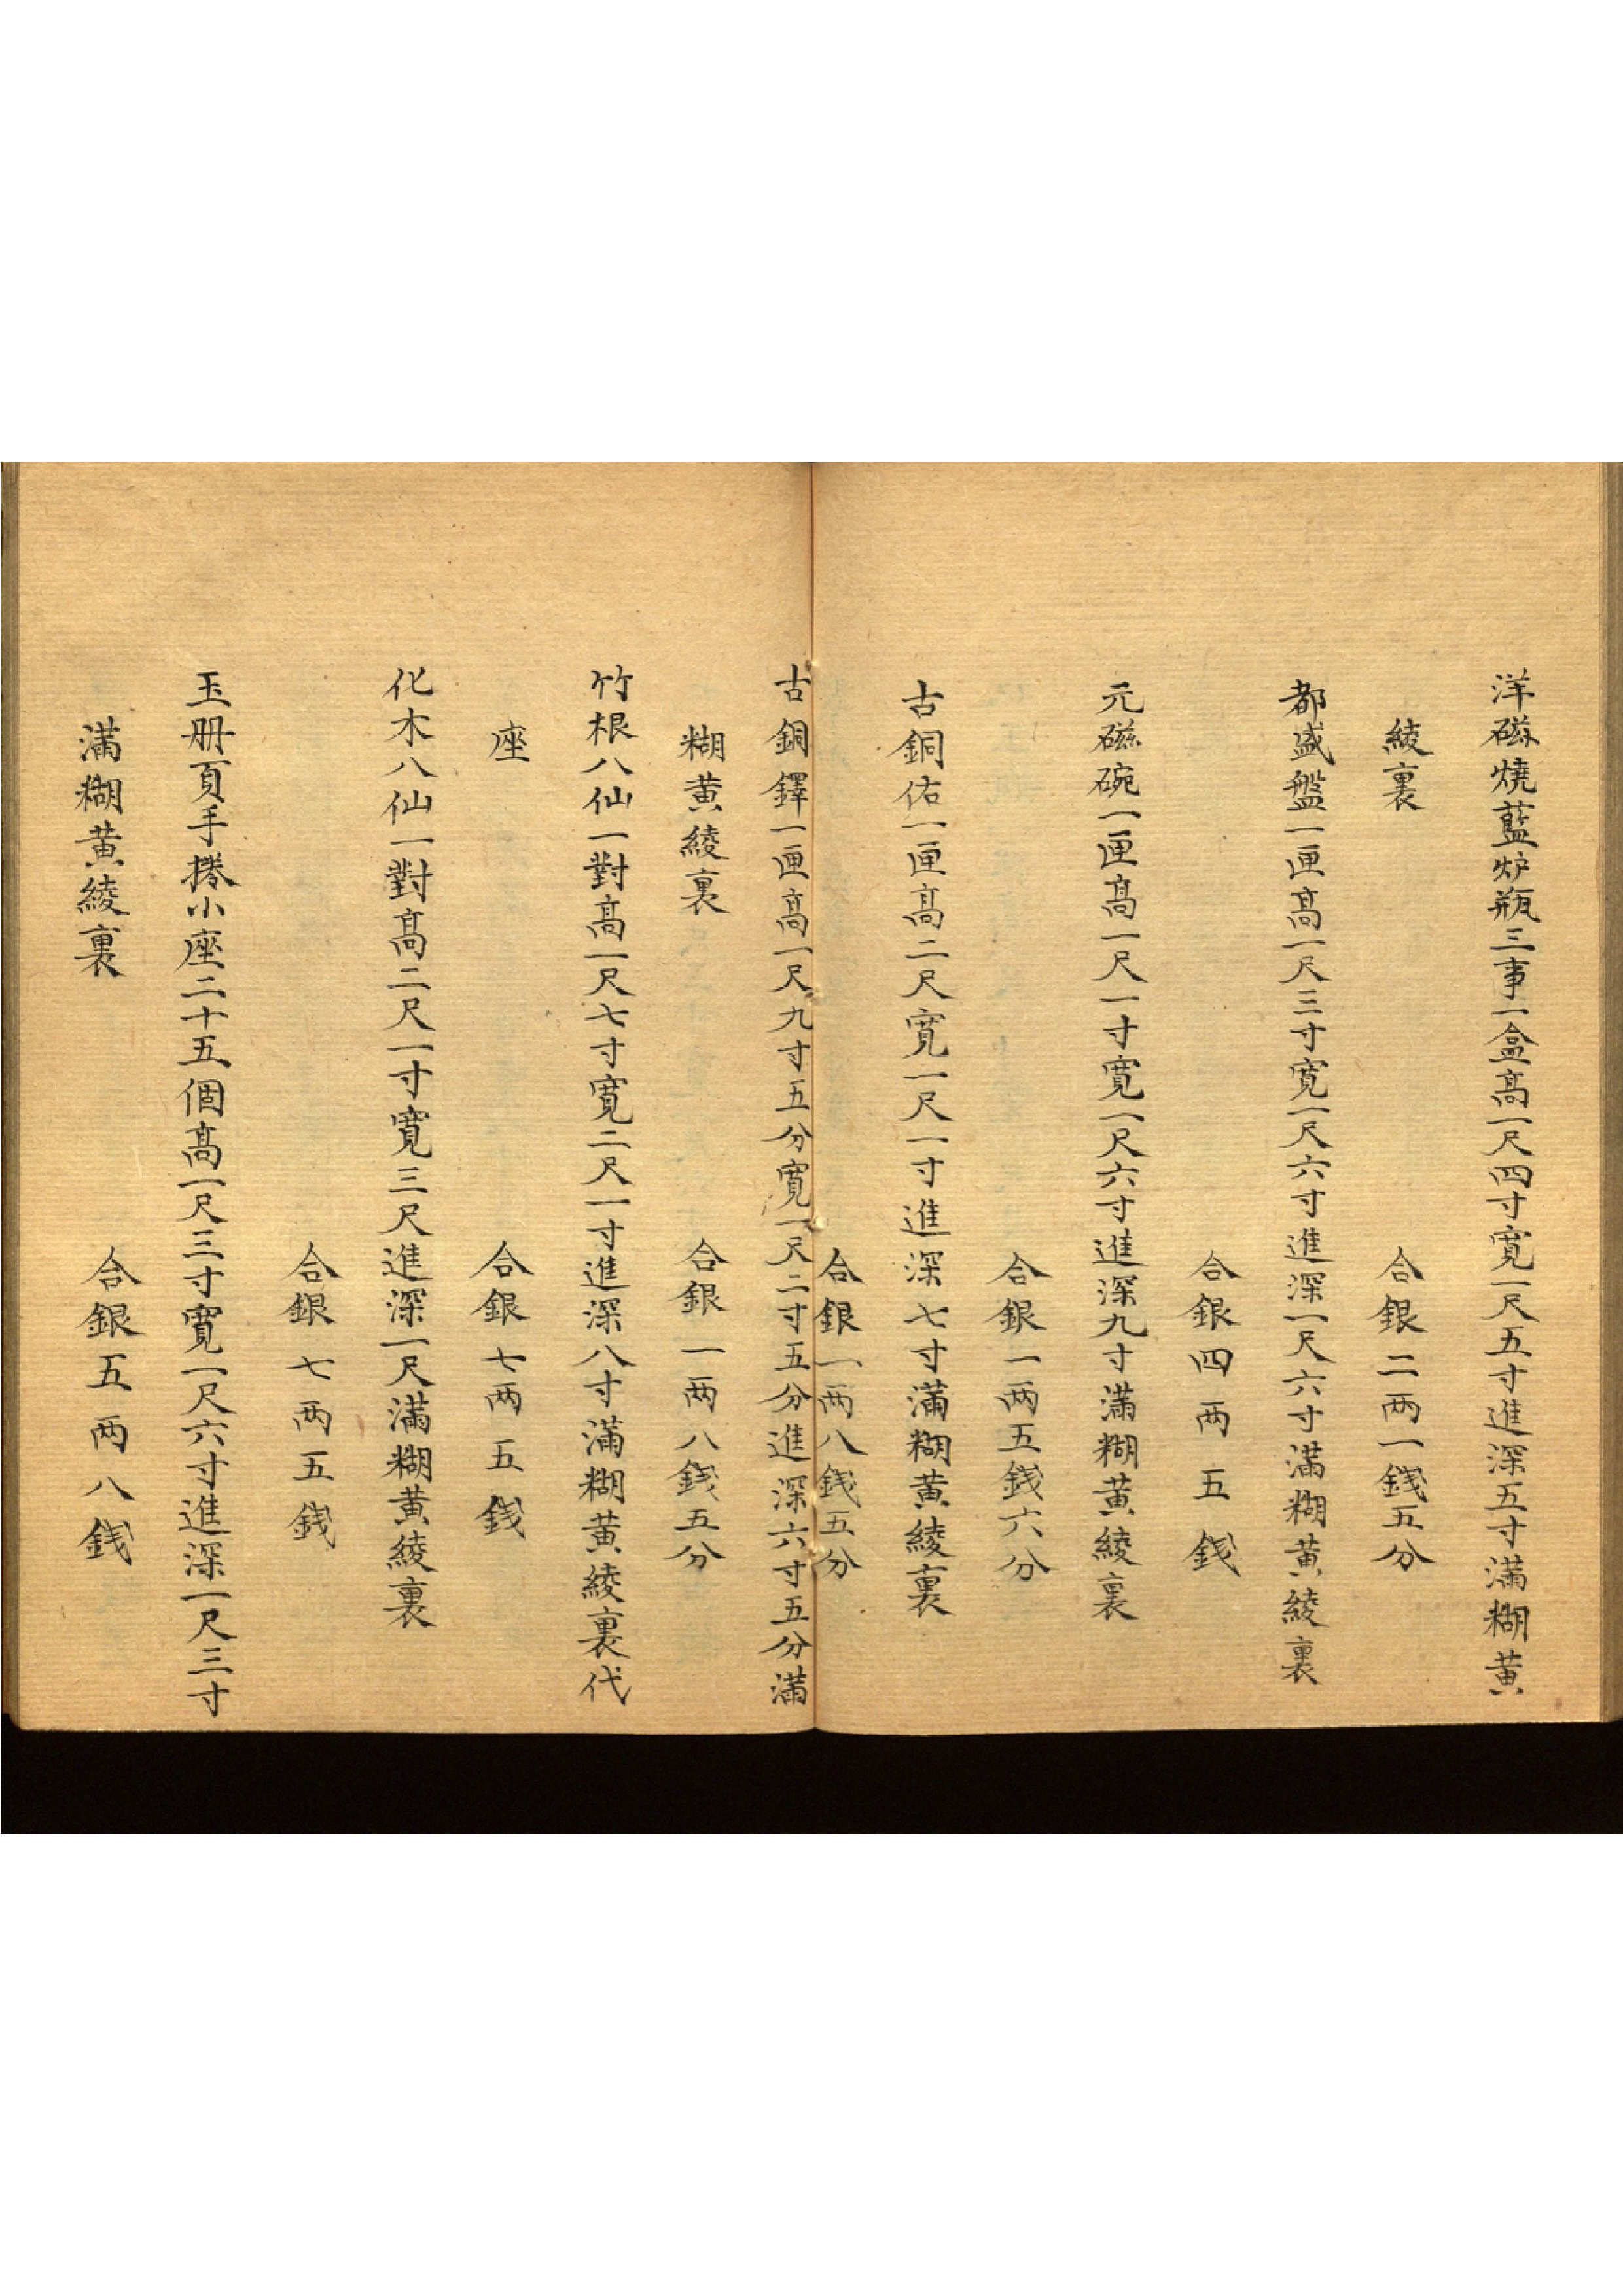 洋磁燒藍炉瓶三事一盒高一尺四寸寬一尺五寸進深五寸滿糊黄
綾裏
合銀二两一錢五分
都盛盤一匣高一尺三寸寬一尺六寸進深一尺六寸滿糊黄綾裏
合銀四两五錢
元磁碗一匣高一尺一寸寬一尺六寸進深九寸滿糊黄綾裏
合銀一两五錢六分
古銅佑一匣高二尺寬一尺一寸進深七寸滿糊黄綾裏
合銀一两八錢五分
古銅鐸一匣高一尺九寸五分寬一尺二寸五分進深六寸五分滿
糊黄綾裏
合銀一两八錢五分
竹根八仙一對高一尺七寸寬二尺一寸進深八寸滿糊黄綾裏代
座
合銀七两五錢
化木八仙一對高二尺一寸寬三尺進深一尺滿糊黄綾裏
合銀七两五錢
玉册頁手捲小座二十五個高一尺三寸寬一尺六寸進深一尺三寸
滿糊黄綾裏
合銀五两八錢